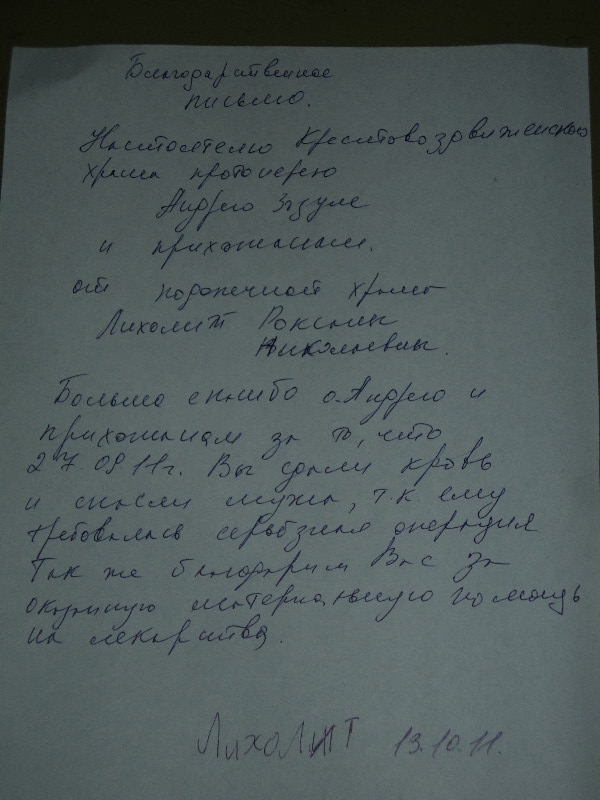 Благодарственное
письмо.
Настоятелю Крестовоздвиженского
храма протоиерею
Андрею Зазуле
и прихожанам.
от подопечной храма
Лихолит Роксаны
Николаевны.
Больша спасибо о.Андрею и
прихожанам за то, что
27.09.11г. Вы сдали кровь
и спасли мужа, т.к. ему
требовалась серьёзная операция
Так же благодарим Вас за
оказаную материальную помощь
на лекарства.
Лихолит 13.10.11.